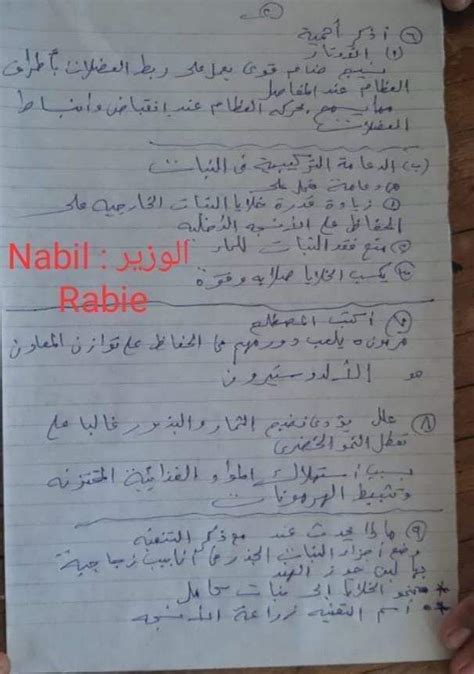 ٦ أذكر أهمية
(٩) الأوتار
نسيج ضام قوى يعمل على ربط العضلات بأطراف
العظام عند المفاصل
مما يسمح بحركة العظام عند انقباض وانبساط
العضلات
(ب) الدعامة التركيبية فى النبات
دعامة تعمل على
① زيادة قدرة خلايا النبات الخارجيه على
الحفاظ على الأنسجه الداخليه
② منع فقد النبات للماء
③ يكسب الخلايا صلابه وقوة
Nabil : الوزير
Rabie
أكتب المصطلح
هرمون يلعب دور مهم فى الحفاظ على توازن المعادن
هو الألدوستيرون
٨ علل يؤدى نضج الثمار والبذور غالبا على
تعطل النمو الخضرى
بسبب استهلاك المواد الغذائية المختزنه
وتثبيط الهرمونات
٩ ماذا يحدث عند مع ذكر التقنيه
وضع أجزاء النبات الجذر فى أنابيب زجاجية
بها لبن جوز الهند
* تنمو الخلايا إلى نبات كامل
* اسم التقنيه زراعة الأنسجه